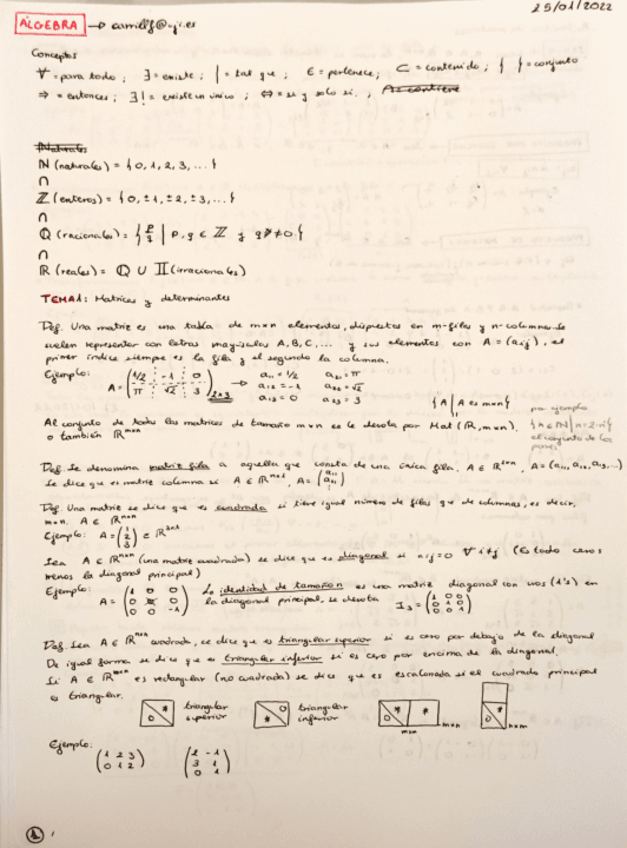 25/01/2022
ÁLGEBRA → carrillf@uji.es
Conceptos
∀ = para todo ; ∃ = existe ; | = tal que ; ∈ = pertenece ; ⊂ = contenido ; { } = conjunto
⇒ = entonces ; ∃! = existe un único ; ⇔ = si y solo si. ;
Naturales
ℕ (naturales) = {0, 1, 2, 3, ...}
∩
ℤ (enteros) = {0, ±1, ±2, ±3, ...}
∩
ℚ (racionales) = {p/q | p, q ∈ ℤ y q ≠ 0}
∩
ℝ (reales) = ℚ ∪ 𝕀 (irracionales)
TEMA 1: Matrices y determinantes
Def. Una matriz es una tabla de m×n elementos, dispuestos en m-filas y n-columnas. Se
suelen representar con letras mayúsculas A, B, C, ... y sus elementos con A = (aij), el
primer índice siempre es la fila y el segundo la columna.
Ejemplo: A = (1/2 -1 0 / π √2 3) 2×3 → a11 = 1/2 a21 = π
a12 = -1 a22 = √2
a13 = 0 a23 = 3
{A | A es m×n}
Al conjunto de todas las matrices de tamaño m×n se le denota por Mat (ℝ, m×n).
o también ℝm×n
por ejemplo
{n ∈ ℕ | n = 2·n}
el conjunto de los
pares
Def. Se denomina matriz fila a aquella que consta de una única fila. A ∈ ℝ1×n, A = (a11, a12, a13, ...)
Se dice que es matriz columna si A ∈ ℝn×1, A = (a11 / a21)
Def. Una matriz se dice que es cuadrada si tiene igual número de filas que de columnas, es decir,
m=n. A ∈ ℝn×n
Ejemplo: A = (1 / 2 / 3) ∈ ℝ3×1
Sea A ∈ ℝn×n (una matriz cuadrada) se dice que es diagonal si aij = 0 ∀ i≠j (Es todo ceros
menos la diagonal principal)
Ejemplo: A = (1 0 0 / 0 0 / 0 0 -1)
La identidad de tamaño n es una matriz diagonal con unos (1's) en
la diagonal principal, se denota I3 = (1 0 0 / 0 1 0 / 0 0 1)
Def. Sea A ∈ ℝn×n cuadrada, se dice que es triangular superior si es cero por debajo de la diagonal
De igual forma se dice que es triangular inferior si es cero por encima de la diagonal.
Si A ∈ ℝm×n es rectangular (no cuadrada) se dice que es escalonada si el cuadrado principal
es triangular.
* 0 triangular superior
0 * triangular inferior
* 0 * m×n
* 0 n×m
Ejemplo:
(1 2 3 / 0 1 2) (2 -1 / 3 1 / 0 1)
1